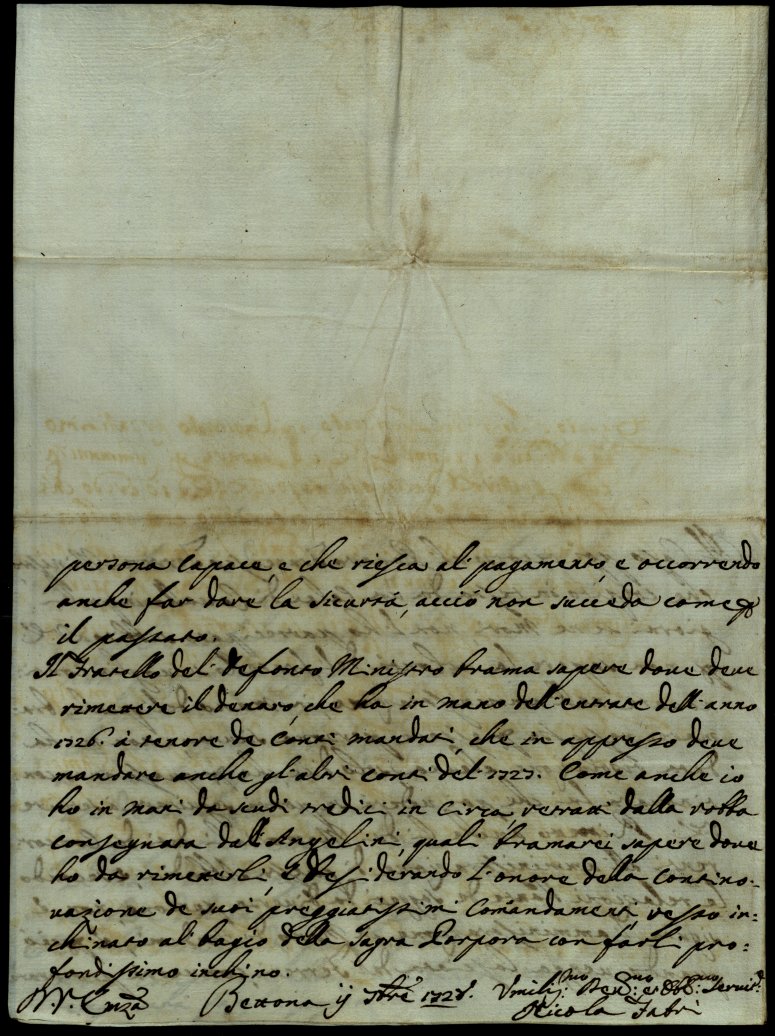 persona capace, e che riesca al pagamento, e occorrendo
anche far dare la sicurtá, acció non succeda come p
il passato.
Il Fratello del Defonto Ministro brama sapere doue deue
rimettere il denaro, che ha in mano dell'entrate dell'anno
1726. à tenore de Conti mandati, che in appresso deue
mandare anche gl'altri conti del 1727. Come anche io
ho in mani da scudi tredici in circa, retratti dalla robba
consegnata dall'Angelini, quali bramarei sapere doue
ho da rimetterli, e Desiderando l'onore della contino-
uazione de suoi preggiatissimi Comandamenti, resto in-
chinato al bagio della Sagra Porpora con farli pro-
fondissimo inchino.
Bettona ij 7bre 1728. Umiliss:mo Deu:mo et Obb:mo Seruit:e
Nicola Fabri